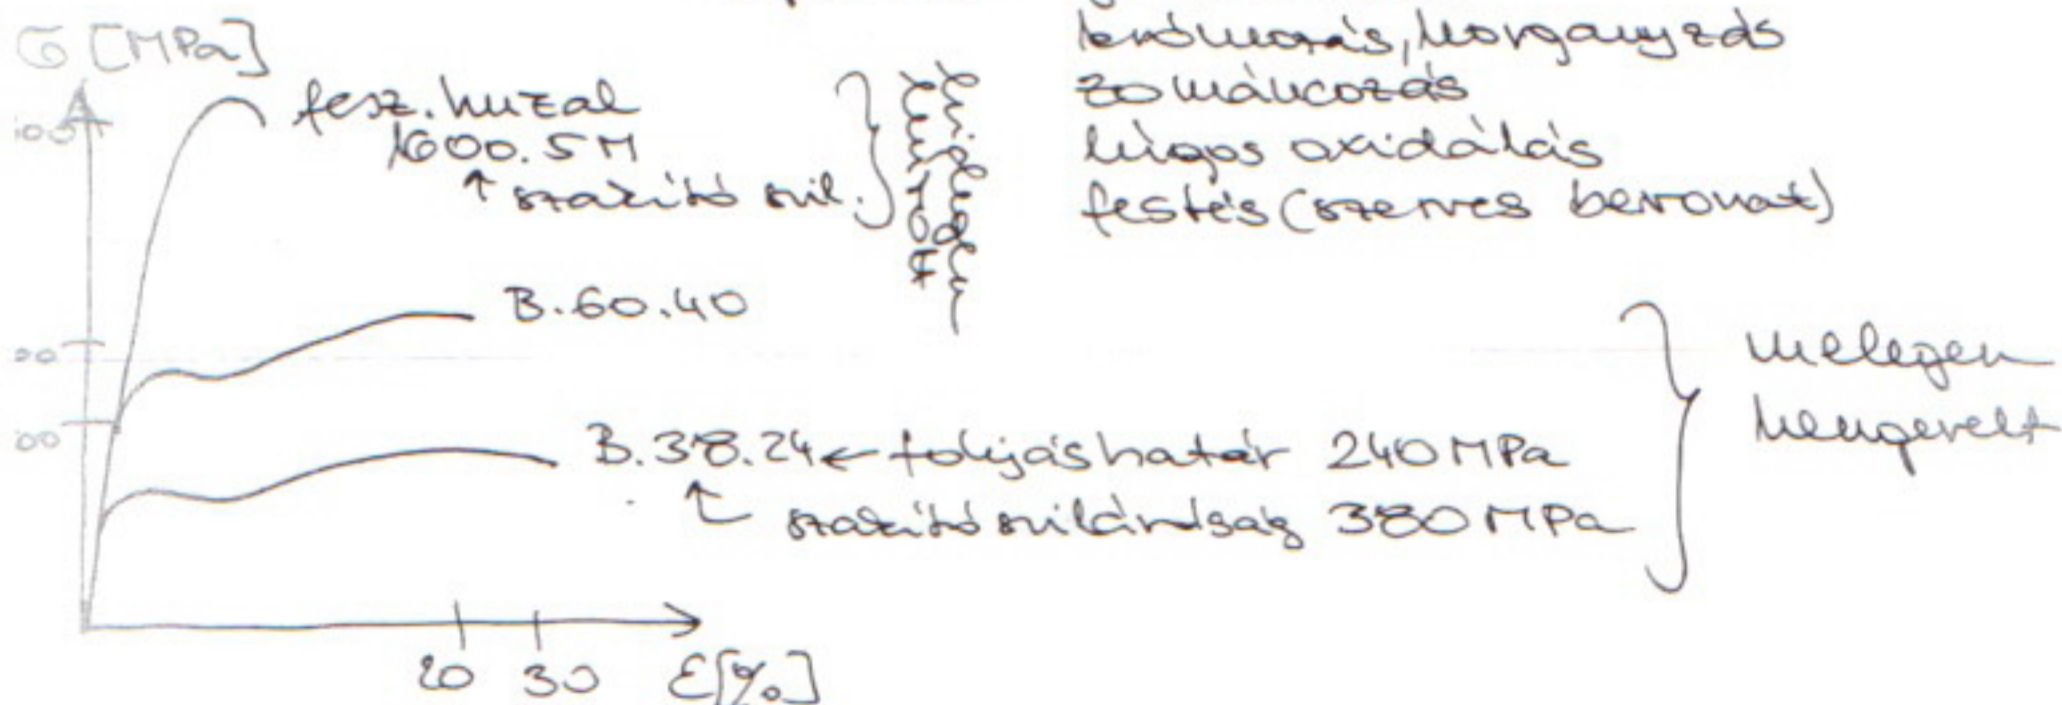 σ [MPa]
fesz. huzal
1600.5M
↑ szakító szil.
hidegen
krómozás, horganyzás
zománcozás
lúgos oxidálás
festés (szerves bevonat)
B.60.40
B.38.24 ← folyáshatár 240 MPa
↑ szakítószilárdság 380 MPa
melegen
hengerelt
20 30 ε[%]